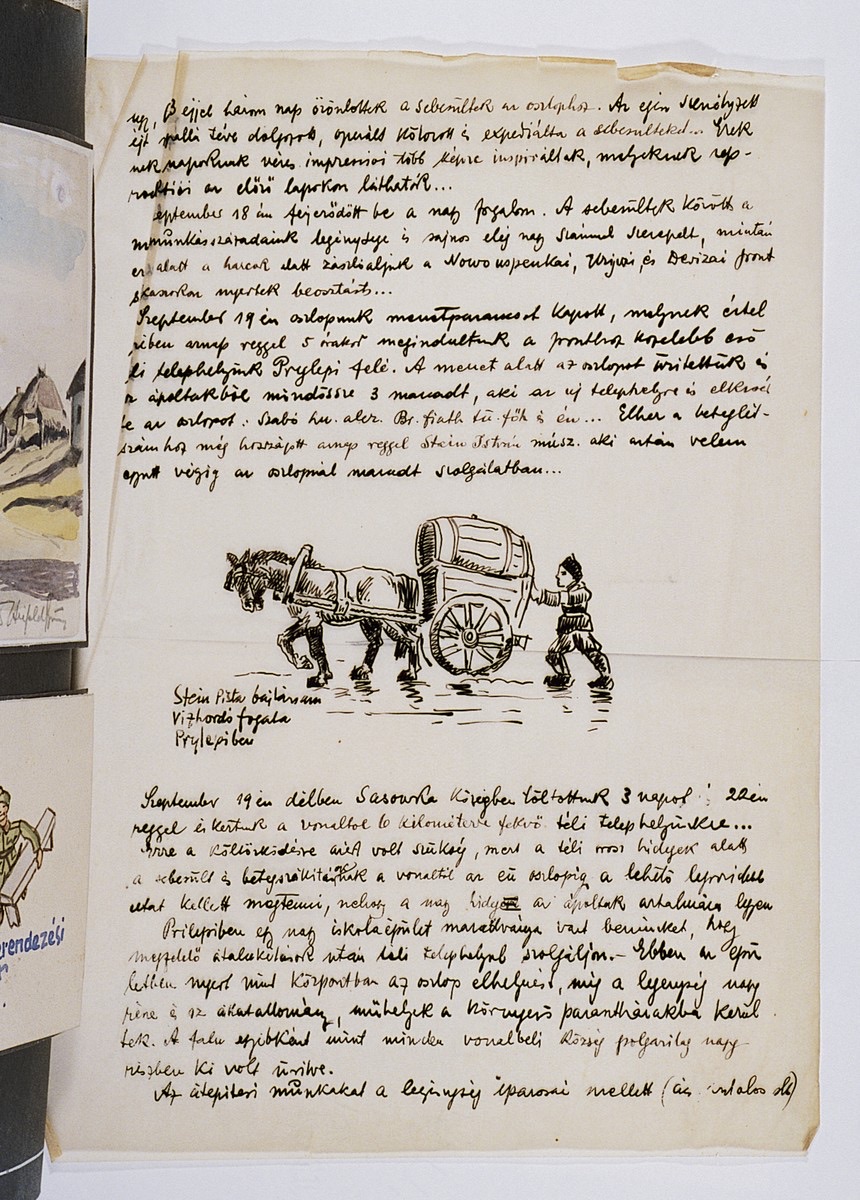 éjjel három nap özönlöttek a sebesültek az oszlophoz. Az egész személyzet
téve dolgozott, operált kötözött és expediálta a sebesülteket... Ezek
nek napoknak véres impressioi több képre inspiráltak, melyeknek rep-
az előző lapokon láthatók...
eptember 18 án fejeződött be a nagy forgalom. A sebesültek között a
munkásszázadaink legénysége is sajnos elég nagy számmal szerepelt, miután
alatt a harcok alatt zászlóaljunk a Nowouspenkai, és Devizai front
szakaszokon nyertek beosztást...
Szeptember 19 én oszlopunk menetparancsot kapott, melynek értel
mében aznap reggel 5 órakor megindultunk a fronthoz közelebb eső
li telephelyünk Prylepi felé. A menet alatt az oszlopot ürítettük és
az ápoltakból mindössze 3 maradt, aki az új telephelyre is elkisér
te az oszlopot: Szabó hu. alez. Br. fiath tü. föh és én... Ehhez a beteglét-
számhoz még hozzájött aznap reggel Stein István müsz. aki aztán velem
együtt végig az oszlopnál maradt szolgálatban...
Stein Pista bajtársam
Vizhordó fogata
Prylepiben
Szeptember 19 én délben Sasowka községben töltöttünk 3 napot 22 én
reggel érkeztünk a vonaltól 6 kilométerre fekvő téli telephelyünkre...
Erre a költözködésre azért volt szükség, mert a téli orosz hidegek alatt
a sebesült és betegszállításnak a vonaltól az eü oszlopig a lehető legrövidebb
utat kellett megtenni, nehogy a nagy hideg az ápoltak ártalmára legyen
Prilepiben egy nagy iskolaépület maradványa várt bennünket, hogy
megfelelő átalakítások után téli telephelyül szolgáljon. – Ebben az épü
letben nyert mint központban az oszlop elhelyezést, míg a legénység nagy
része és az állatállomány, műhelyek a környező parasztházakba kerül
tek. A falu egyébként mint minden vonalbeli község polgárilag nagy
részben ki volt ürítve.
Az átépítési munkákat a legénység iparosai mellett (ács asztalos stb)
erendezési